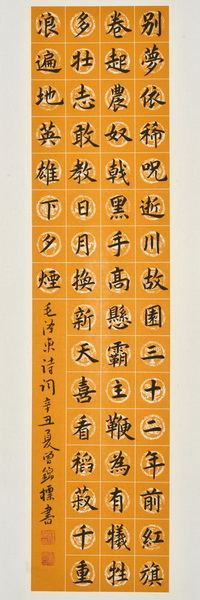 别夢依稀呪逝川故園三十二年前紅旗
卷起農奴戟黑手高懸霸主鞭為有犧牲
多壯志敢教日月換新天喜看稻菽千重
浪遍地英雄下夕煙
毛泽东诗词辛丑夏曾標書